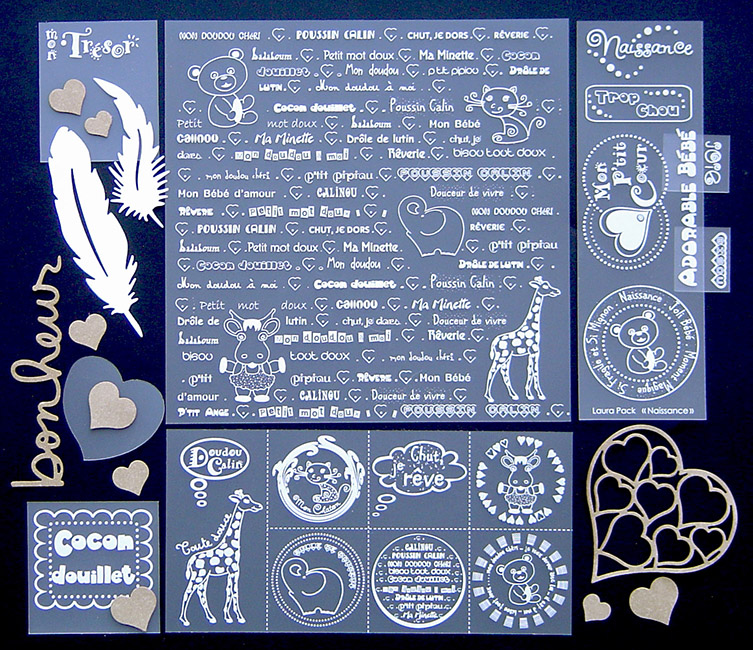 mon Trésor
MON DOUDOU CHÉRI . POUSSIN CALIN . CHUT, JE DORS . RÊVERIE .
balaboum . Petit mot doux . Ma Minette . Cocon
douillet . Mon doudou . p'tit pipiou . DRÔLE DE
LUTIN . Mon doudou à moi . .
. Cocon douillet . Poussin Calin
Petit mot doux . balaboum . Mon Bébé
CALINOU . Ma Minette . Drôle de lutin . chut, je
dors . mon doudou à moi . Rêverie . bisou tout doux .
. mon doudou chéri . p'tit pipiou . POUSSIN CALIN .
Mon Bébé d'amour . CALINOU . Douceur de vivre .
RÊVERIE . Petit mot doux . MON DOUDOU CHÉRI .
. POUSSIN CALIN . CHUT, JE DORS . RÊVERIE .
balaboum . Petit mot doux . Ma Minette . . p'tit pipiou
. Cocon douillet . Mon doudou . DRÔLE DE LUTIN .
Mon doudou à moi . Cocon douillet . Poussin Calin .
. Petit mot doux . CALINOU . Ma Minette .
Drôle de lutin . chut, je dors . Douceur de vivre
balaboum . mon doudou à moi . Rêverie .
bisou tout doux . mon doudou chéri .
. p'tit pipiou . RÊVERIE . Mon Bébé
d'amour . CALINOU . Douceur de vivre .
P'TIT ANGE . Petit mot doux . POUSSIN CALIN .
Naissance
Trop
Chou
Mon
P'tit
Coeur
ADORABLE BÉBÉ
Si Fragile et Si Mignon Naissance Joli Bébé Moment Magique
Laura Pack « Naissance »
bonheur
Cocon
douillet
Doudou
Calin
Toute douce
Chut
je
rêve
CALINOU
POUSSIN CALIN
MON DOUDOU CHÉRI
bisou tout doux
Cocon douillet
mon doudou à moi
DRÔLE DE LUTIN
p'tit pipiou
Ma Minette